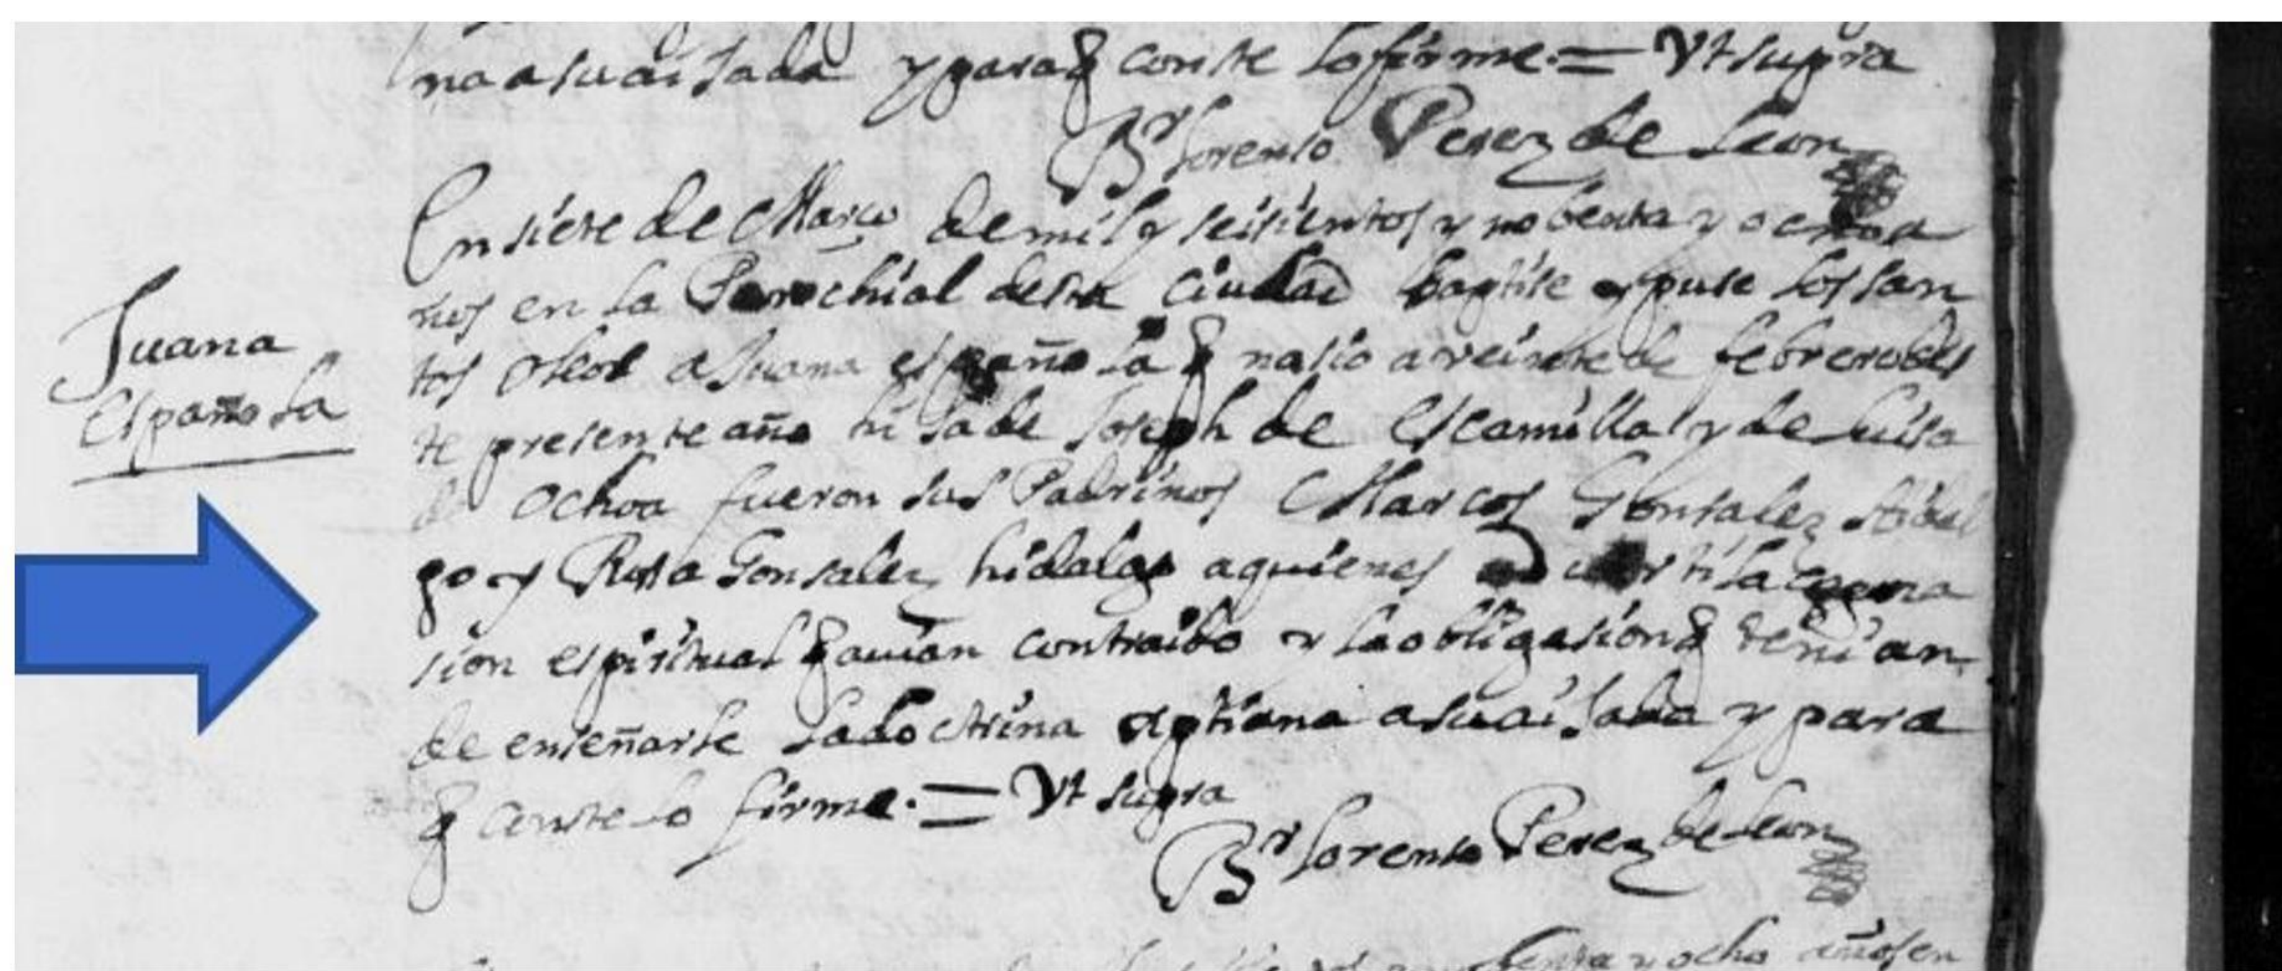 na asuaijada y para q conste lo firme = Vt supra
Br Lorenso Perez de Leon
En siete de Março de mil y seisientos y nobenta y ocho a
Juana
Española
nos en la Parrochial desta Ciudad baptise y puse los san
tos oleos a Juana española q nasio a veinte de febrero des
te presente año hija de Joseph de Escamilla y de Luisa
de Ochoa fueron sus Padrinos Marcos Gonsalez Hidal
go y Rosa Gonsalez hidalgo aquienes aduerti la cogna
sion espiritual q auian contraido y la obligasion q tenian
de enseñarle la doctrina xptiana asuaijada y para
q conste lo firme. = Vt supra
Br Lorenso Perez de Leon
y ocho años en